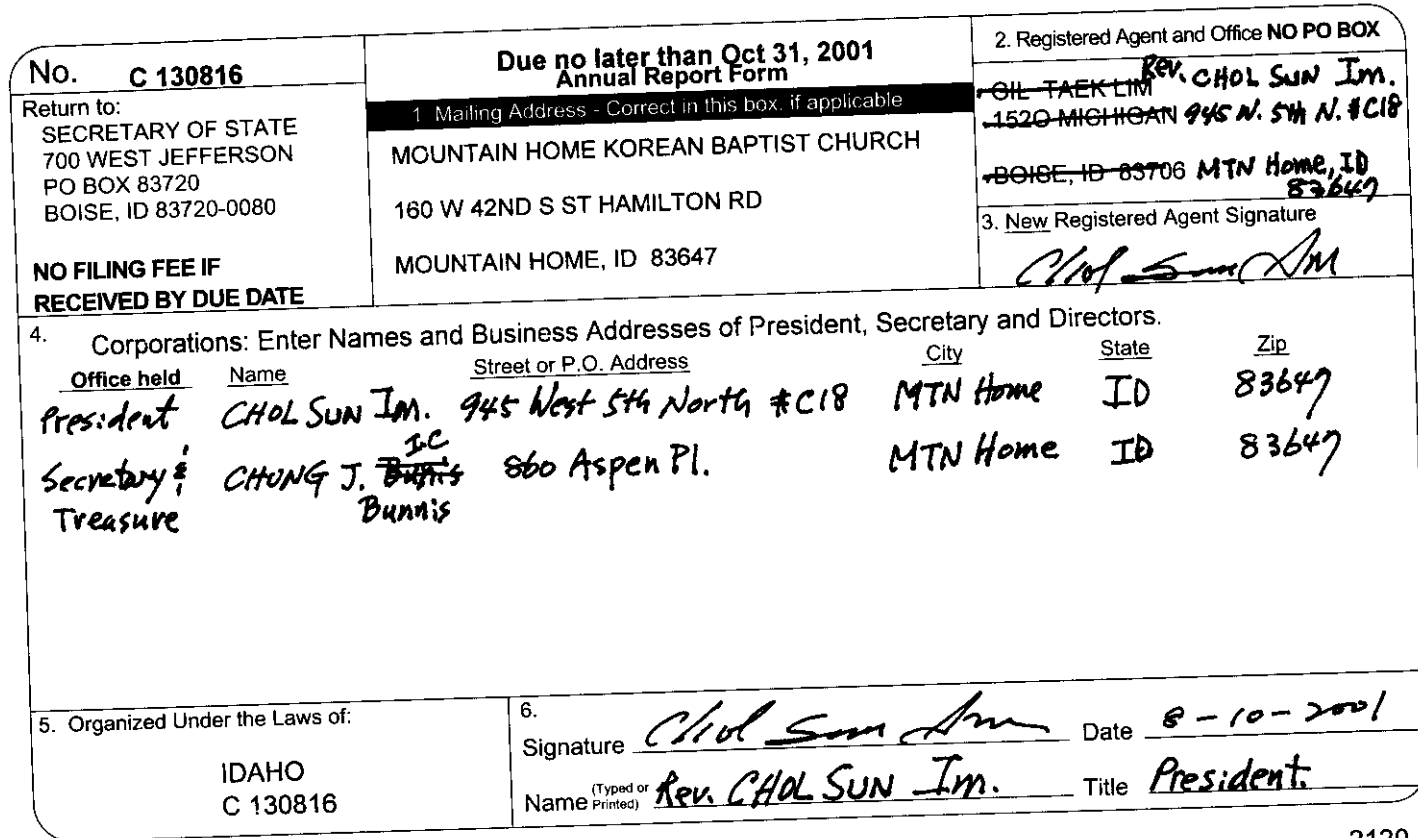 No. C 130816
Return to:
SECRETARY OF STATE
700 WEST JEFFERSON
PO BOX 83720
BOISE, ID 83720-0080
NO FILING FEE IF
RECEIVED BY DUE DATE
Due no later than Oct 31, 2001
Annual Report Form
1 Mailing Address - Correct in this box. if applicable
MOUNTAIN HOME KOREAN BAPTIST CHURCH
160 W 42ND S ST HAMILTON RD
MOUNTAIN HOME, ID 83647
2. Registered Agent and Office NO PO BOX
OIL TAEK LIM Rev. CHOL SUN Im.
1520 MICHIGAN 945 N. 5th N. #C18
BOISE, ID 83706 MTN Home, ID
83647
3. New Registered Agent Signature
Chol Sun Im
4. Corporations: Enter Names and Business Addresses of President, Secretary and Directors.
Office held Name Street or P.O. Address City State Zip
President CHOL SUN Im. 945 West 5th North #C18 MTN Home ID 83647
Secretary & CHUNG J. 860 Aspen Pl. MTN Home ID 83647
Treasure Bunnis
5. Organized Under the Laws of:
IDAHO
C 130816
6.
Signature Chol Sun Im Date 8-10-2001
Name (Typed or Printed) Rev. CHOL SUN Im. Title President.